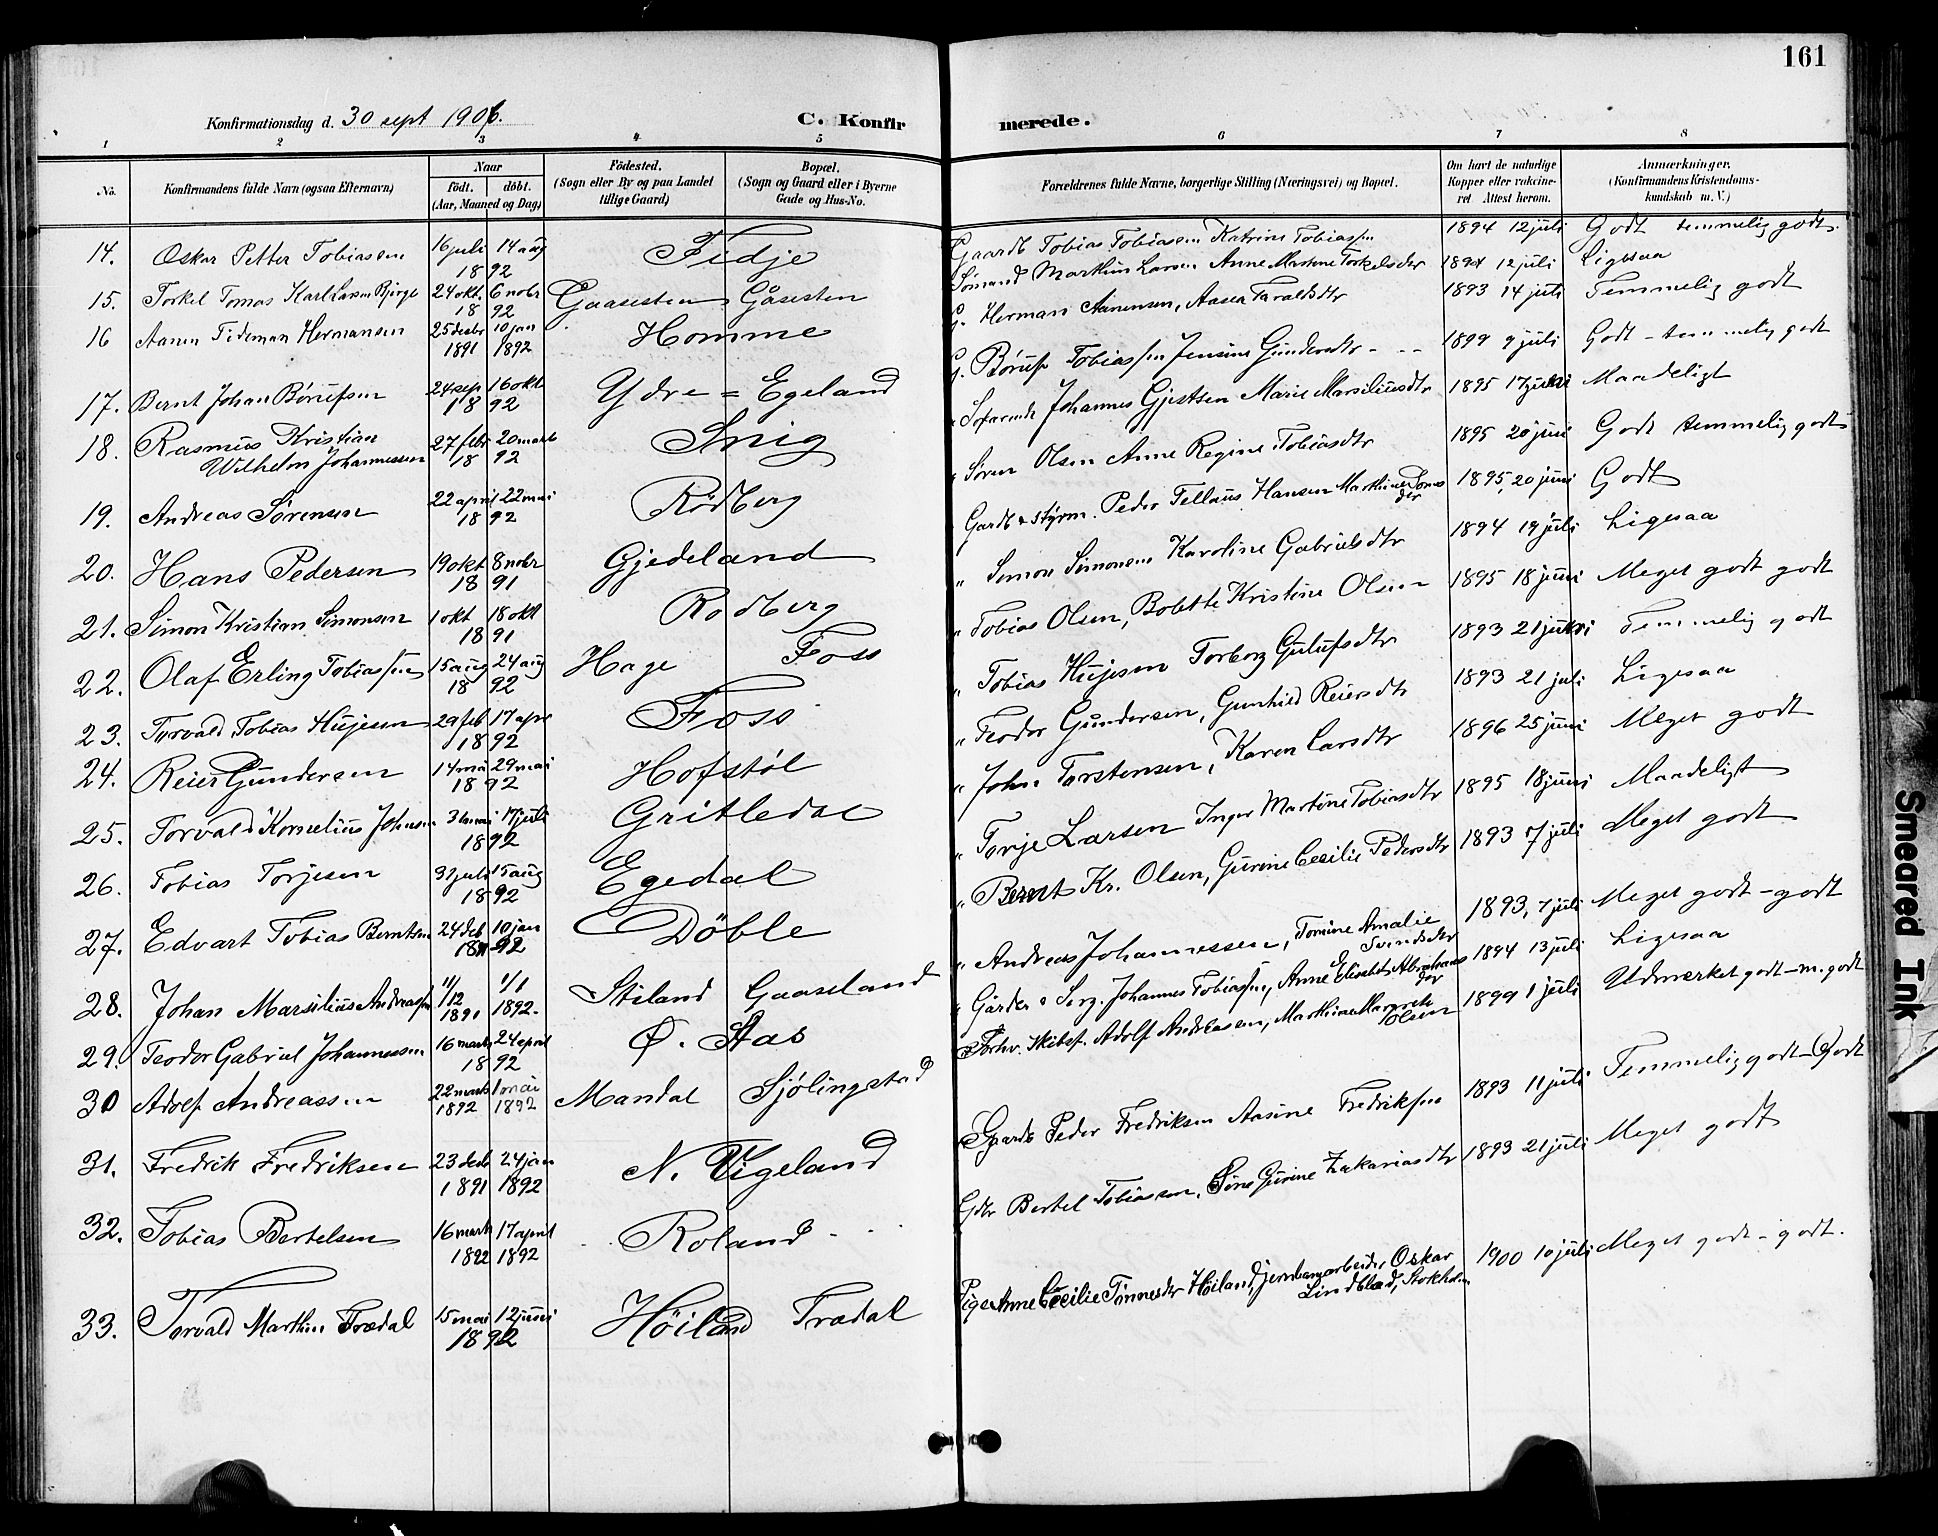 161
Konfirmationsdag d. 30 sept 1906.
C. Konfirmerede.
1 2 3 4 5 6 7 8
No. Konfirmandens fulde Navn (ogsaa Efternavn) Naar födt. döbt. (Aar, Maaned og Dag) Födested. (Sogn eller By og paa Landet tillige Gaard) Bopæl. (Sogn og Gaard eller i Byerne Gade og Hus-No. Forældrenes fulde Navne, borgerlige Stilling (Næringsvei) og Bopæl. Om havt de naturlige Kopper eller vakcineret. Attest herom. Anmærkninger. (Konfirmandens Kristendomskundskab m. V.)
14. Oskar Petter Tobiassen 16 juli 14 aug 1892 Fidje Gaardb Tobias Tobiassen Katrine Tobiassen 1894 12 juli Godt temmelig godt.
15. Torkel Tomas Karl Larsen Bjørge 24 okt. 6 nobr 1892 Gaasesten Gåsesten Sömand Marthin Larsen Anne Martene Torkelsdtr 1894 12 juli Ligesaa
16 Aanen Tideman Hermansen 25 decbr 1891 10 jan 1892 Homme G. Herman Aanensen, Aasea Taraldsdtr 1893 14 juli Temmelig godt
17. Bernt Johan Börufsen 24 sep 16 okt 1892 Ydre = Egeland G. Böruf Tobiassen Jensine Gundersdtr 1899 9 juli Godt - temmelig godt
18. Rasmus Kristian Wilhelm Johannessen 27 febr 20 marts 1892 Snig Johannes Gjertsen Marie Marsiliusdtr 1895 17 juni Maadeligt
19. Andreas Sörensen 22 april 22 mai 1892 Rödberg " Sören Olsen Anne Regine Tobiasdtr 1895 20 juni Godt temmelig godt
20. Hans Pedersen 19 okt 8 nobr 1891 Gjedeland Gardb & styrm. Peder Tellaus Hansen Marthine Tomasdtr 1895, 20 juni Godt
21. Simon Kristian Simonsen 1 okt 18 okt 1891 Rodberg " Simon Simonsen Karoline Gabrielsdtr 1894 19 juli Ligesaa
22. Olaf Erling Tobiassen 15 aug 24 aug 1892 Hage Foss " Tobias Olsen, Bolette Kristine Olsen 1895 18 juni Meget godt godt
23. Torvald Tobias Hujesen 29 feb 17 apr 1892 Foss " Tobias Hujesen Torborg Gulufsdtr 1893 21 juni Temmelig godt
24. Reier Gundersen 14 mai 29 mai 1892 Hofstöl " Teodor Gundersen, Gunhild Reiersdtr 1893 21 juli Ligesaa
25. Torvald Kornelius Johnsen 3 mai 17 juli 1892 Gritledal " John Torstensen, Karen Larsdtr 1896 25 juni Meget godt
26. Tobias Torjesen 31 juli 15 aug 1892 Egedal " Torje Larsen Inger Martine Tobiasdtr 1895 18 juni Maadeligt
27. Edvart Tobias Berntsen 24 deb 10 jan 1891-92 Döble " Bernt Kr. Olsen, Gurine Cecilie Pedersdtr 1893 7 juli Meget godt
28. Johan Marsilius Andreassen 11/12 1891 1/1 1892. Stiland Gaaseland " Andreas Johannessen, Tomine Amalie Svendsdtr 1893, 7 juli Meget godt - godt
29. Teodor Gabriel Johannessen 16 marts 24 april 1892 Ö. Aas " Gårdbr & Serg. Johannes Tobiassen, Anne Elisabeth Abrahamsdtr 1894 13 juli Ligesaa
30 Adolf Andreassen 22 marts 1892 1 mai 1892 Mandal Sjölingstad Forhv. Skibsf. Adolf Andreassen, Marthine Margrete Olsen 1899 1 juli Udmærket godt - m. godt
31. Fredrik Fredriksen 23 decb 1891 24 jan 1892 N. Vigeland Gaardb Peder Fredriksen Aasine Fredriksen 1893 11 juli Temmelig godt - Godt
32. Tobias Bertelsen 16 marts 1892 17 april 1892 Roland Gdbr Bertel Tobiassen, Sine Gurine Zakariasdtr 1893 21 juli Meget godt
33. Torvald Marthin Trædal 15 mai 12 juni 1892 Höiland Trædal Pige Anne Cecilie Tönnesdtr Höiland, jernbanearbeider Oskar Lindblad, Stokholm 1900 10 juli Meget godt - godt.
Smeared Ink